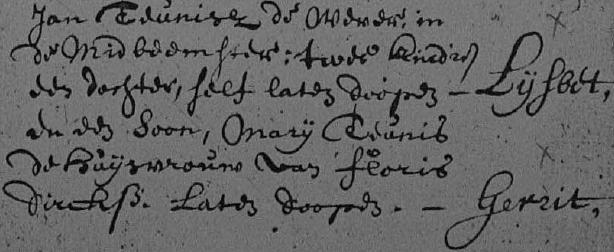 Jan Teunisz de Wever, in
de Midbeemster; twee kindres
een dochter, self laten doopen – Lijsbet,
en een Soon, Marij Teunis
de huijsvrouw van Floris
Dircksz. Laten doopen. – Gerrit,